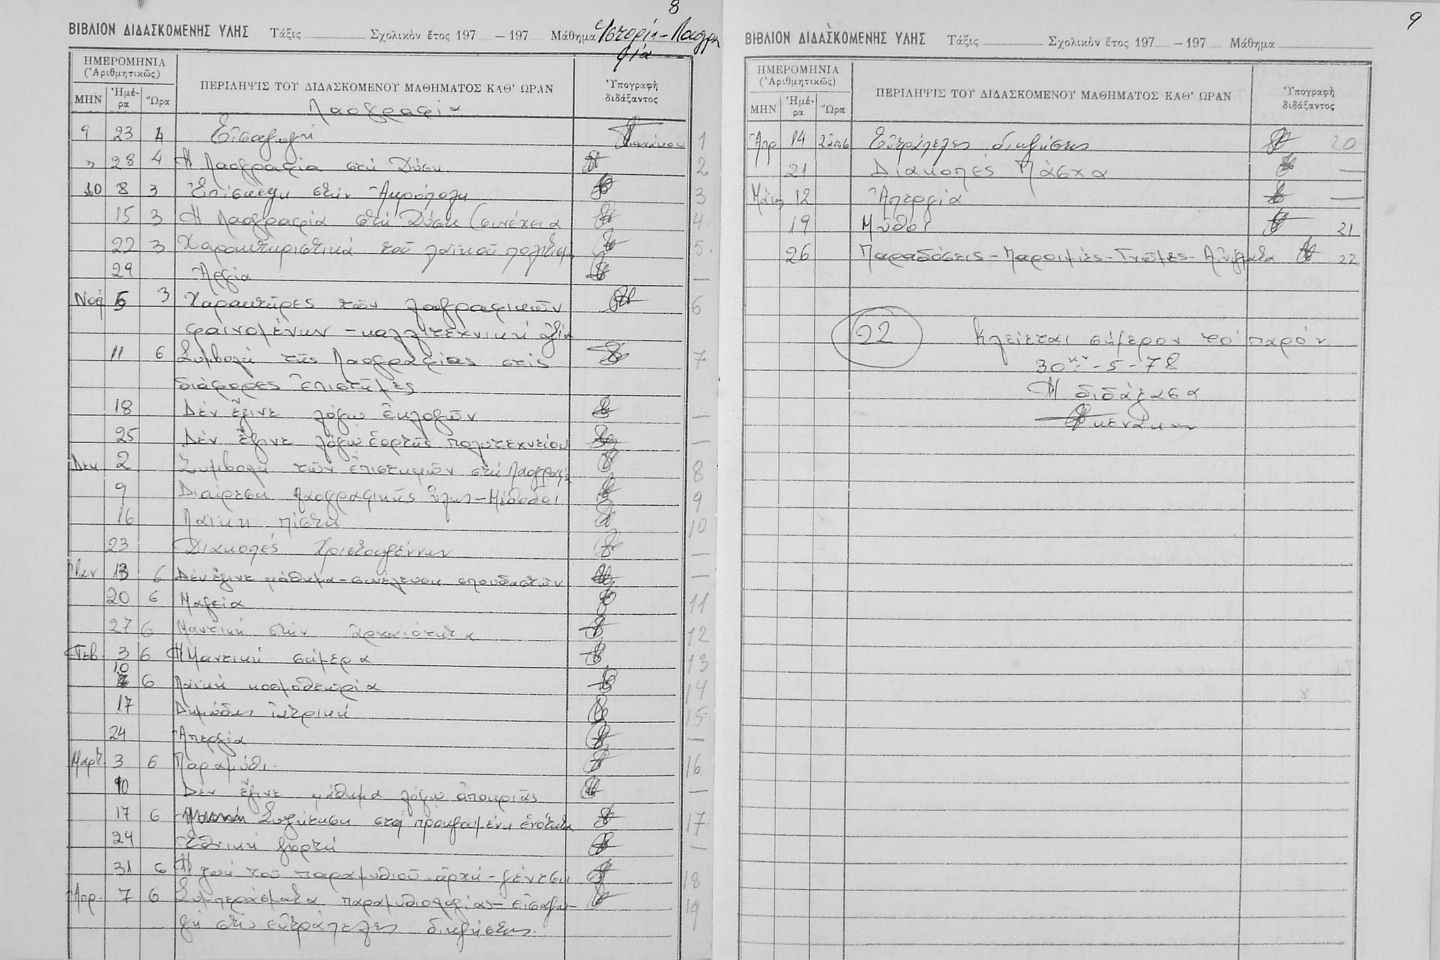 8
ΒΙΒΛΙΟΝ ΔΙΔΑΣΚΟΜΕΝΗΣ ΥΛΗΣ Τάξις Σχολικὸν ἔτος 197 -197 Μάθημα Ἱστορία - Λαογρα
φία
ΗΜΕΡΟΜΗΝΙΑ
(Ἀριθμητικῶς)
ΜΗΝ Ἡμέ-
ρα Ὥρα
ΠΕΡΙΛΗΨΙΣ ΤΟΥ ΔΙΔΑΣΚΟΜΕΝΟΥ ΜΑΘΗΜΑΤΟΣ ΚΑΘ' ΩΡΑΝ
Ὑπογραφὴ
διδάξαντος
Λαογραφία
9 23 4 Εἰσαγωγή 1
" 28 4 Ἡ Λαογραφία στή Δύση. 2
10 8 3 Ἐπίσκεψη στήν Ἀκρόπολη 3
15 3 Ἡ Λαογραφία στή Δύση (συνέχεια 4
22 3 Χαρακτηριστικά τοῦ λαϊκοῦ πολιτισμ 5
29 Ἀργία —
Νοέ 5 3 Χαρακτῆρες τῶν λαογραφικῶν 6
φαινομένων - καλλιτεχνική ἀξία
11 6 Συμβολή τῆς Λαογραφίας στίς 7
διάφορες ἐπιστῆμες
18 Δέν ἔγινε λόγω ἐκλογῶν —
25 Δέν ἔγινε λόγω ἑορτῆς πολυτεχνείου —
Δεκ 2 Συμβολή τῶν ἐπιστημῶν στή Λαογραφί 8
9 Διαίρεση Λαογραφικῆς ὕλης - Μέθοδοι 9
16 Λαϊκή πίστη 10
23 Διακοπές Χριστουγέννων —
Ἰαν 13 6 Δέν ἔγινε μάθημα - συνέλευση σπουδαστῶν —
20 6 Μαγεία 11
27 6 Μαντική στήν ἀρχαιότητα 12
Φεβ 3 6 Ἡ Μαντική σήμερα 13
10 6 Λαϊκή κοσμοθεωρία 14
17 Δημώδης ἰατρική 15
24 Ἀπεργία —
Μαρτ 3 6 Παραμύθι. 16
10 Δέν ἔγινε μάθημα λόγω ἀποκριᾶς —
17 6 Συζήτηση στή προηγουμένη ἑνότητα 17
24 Ἐθνική γιορτή —
31 6 Ἡ ζωή τοῦ παραμυθιοῦ ἀρχή - γένεση 18
Απρ. 7 6 Συμπεράσματα παραμυθιολογίας - εἰσαγω- 19
γή στίς εὐτράπελες διηγήσεις.
9
ΒΙΒΛΙΟΝ ΔΙΔΑΣΚΟΜΕΝΗΣ ΥΛΗΣ Τάξις Σχολικὸν ἔτος 197 -197 Μάθημα
ΗΜΕΡΟΜΗΝΙΑ
(Ἀριθμητικῶς)
ΜΗΝ Ἡμέ-
ρα Ὥρα
ΠΕΡΙΛΗΨΙΣ ΤΟΥ ΔΙΔΑΣΚΟΜΕΝΟΥ ΜΑΘΗΜΑΤΟΣ ΚΑΘ' ΩΡΑΝ
Ὑπογραφὴ
διδάξαντος
Ἀπρ 14 Εὐτράπελες διηγήσεις 20
21 Διακοπές Πάσχα —
Μάιος 12 Ἀπεργία —
19 Μῦθοι 21
26 Παραδόσεις - Παροιμίες - Γνῶμες - Αἰνίγματα 22
22 Κλείεται σήμερον τό παρόν
30ην - 5 - 78
Ἡ διδάξασα